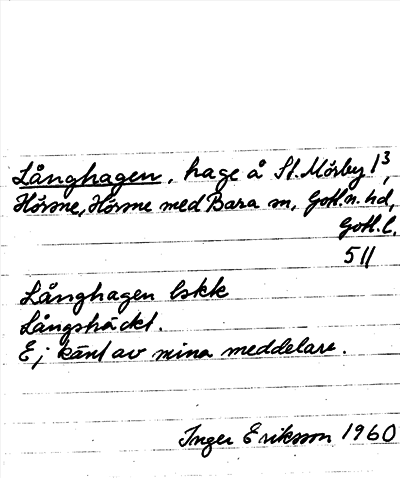 Långhagen, hage å St. Mörby 1³,
Hörsne, Hörsne med Bara sn, Gotl. n. hd,
Gotl. l.
511
Långhagen lskk
Långsträckt.
Ej känt av mina meddelare.
Inger Erikson 1960